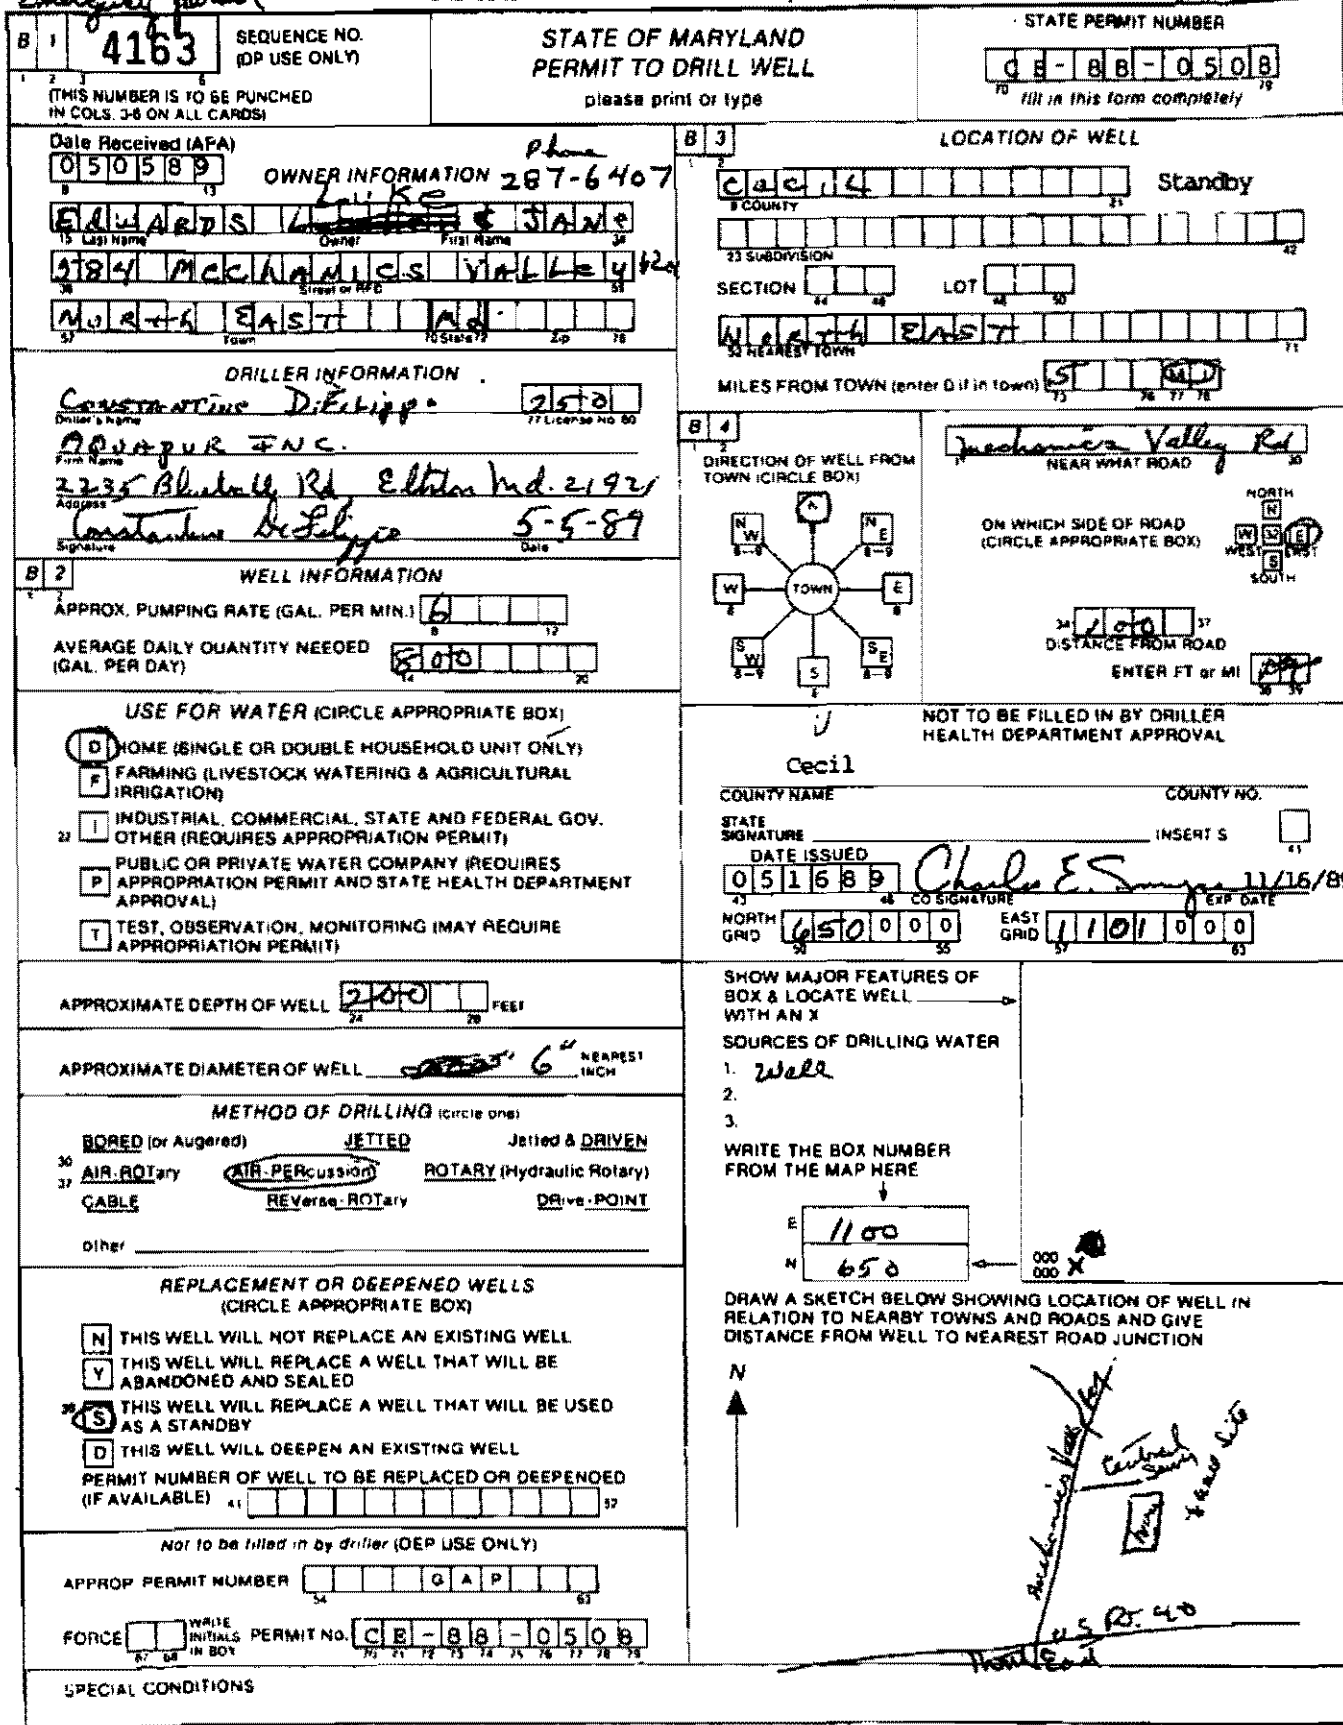 Emergency
B 1 4163 SEQUENCE NO.
(DP USE ONLY)
1 2 3 6
(THIS NUMBER IS TO BE PUNCHED
IN COLS. 3-6 ON ALL CARDS)
STATE OF MARYLAND
PERMIT TO DRILL WELL
please print or type
STATE PERMIT NUMBER
CE-88-0508
70 79
fill in this form completely
Date Received (APA)
050589
8 13
OWNER INFORMATION
Phone
287-6407
Luke
EDWARDS & JANE
15 Last Name Owner First Name 34
384 MECHANICS VALLEY Rd
36 Street or RFD 55
NORTH EAST Md.
57 Town 70 State 72 Zip 76
DRILLER INFORMATION
Constantine DiFilippo 250
Driller's Name 77 License No 80
AQUAPUR INC.
Firm Name
2235 Blueball Rd Elkton Md. 21921
Address
Constantine DiFilippo 5-5-89
Signature Date
B 2 WELL INFORMATION
APPROX. PUMPING RATE (GAL. PER MIN.) 6
8 12
AVERAGE DAILY QUANTITY NEEDED
(GAL. PER DAY) 500
14 20
USE FOR WATER (CIRCLE APPROPRIATE BOX)
D HOME (SINGLE OR DOUBLE HOUSEHOLD UNIT ONLY)
F FARMING (LIVESTOCK WATERING & AGRICULTURAL
IRRIGATION)
22 I INDUSTRIAL, COMMERCIAL, STATE AND FEDERAL GOV.
OTHER (REQUIRES APPROPRIATION PERMIT)
P PUBLIC OR PRIVATE WATER COMPANY (REQUIRES
APPROPRIATION PERMIT AND STATE HEALTH DEPARTMENT
APPROVAL)
T TEST, OBSERVATION, MONITORING (MAY REQUIRE
APPROPRIATION PERMIT)
APPROXIMATE DEPTH OF WELL 200 FEET
24 28
APPROXIMATE DIAMETER OF WELL 6" NEAREST
INCH
METHOD OF DRILLING (circle one)
BORED (or Augered) JETTED Jetted & DRIVEN
30 AIR-ROTary AIR-PERcussion ROTARY (Hydraulic Rotary)
37 CABLE REVerse-ROTary DRive-POINT
other
REPLACEMENT OR DEEPENED WELLS
(CIRCLE APPROPRIATE BOX)
N THIS WELL WILL NOT REPLACE AN EXISTING WELL
Y THIS WELL WILL REPLACE A WELL THAT WILL BE
ABANDONED AND SEALED
39 S THIS WELL WILL REPLACE A WELL THAT WILL BE USED
AS A STANDBY
D THIS WELL WILL DEEPEN AN EXISTING WELL
PERMIT NUMBER OF WELL TO BE REPLACED OR DEEPENED
(IF AVAILABLE) 41 52
Not to be filled in by driller (OEP USE ONLY)
APPROP PERMIT NUMBER G A P
54 63
FORCE WRITE
INITIALS
IN BOX PERMIT NO. CE-88-0508
67 68 70 71 72 73 74 75 76 77 78 79
SPECIAL CONDITIONS
B 3 LOCATION OF WELL
1 2
Cecil Standby
8 COUNTY 21
23 SUBDIVISION 42
SECTION LOT
44 46 48 50
North EAST
52 NEAREST TOWN 71
MILES FROM TOWN (enter 0 if in town) 5 MI
73 76 77 78
B 4
1 2
DIRECTION OF WELL FROM
TOWN (CIRCLE BOX)
N
NW NE
8-9 8-9
W TOWN E
8 8
SW SE
8-9 8-9
S
Mechanics Valley Rd
11 NEAR WHAT ROAD 30
ON WHICH SIDE OF ROAD
(CIRCLE APPROPRIATE BOX)
NORTH
N
W E
WEST EAST
S
SOUTH
34 100 37
DISTANCE FROM ROAD
ENTER FT or MI
38 39
NOT TO BE FILLED IN BY DRILLER
HEALTH DEPARTMENT APPROVAL
Cecil
COUNTY NAME COUNTY NO.
STATE
SIGNATURE INSERT S
41
DATE ISSUED
051689 Charles E. 11/16/89
43 48 CO SIGNATURE EXP DATE
NORTH
GRID 650000
50 55
EAST
GRID 1101000
57 63
SHOW MAJOR FEATURES OF
BOX & LOCATE WELL
WITH AN X
SOURCES OF DRILLING WATER
1. Well
2.
3.
WRITE THE BOX NUMBER
FROM THE MAP HERE
E 1100
N 650
000
000 X
DRAW A SKETCH BELOW SHOWING LOCATION OF WELL IN
RELATION TO NEARBY TOWNS AND ROADS AND GIVE
DISTANCE FROM WELL TO NEAREST ROAD JUNCTION
N
Mechanics Valley Rd
Central
U S Rt. 40
North East